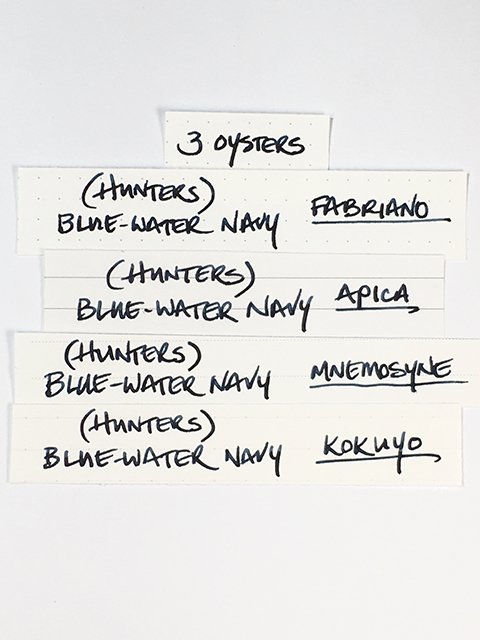 3 OYSTERS
(HUNTERS)
BLUE-WATER NAVY FABRIANO
(HUNTERS)
BLUE-WATER NAVY APICA
(HUNTERS)
BLUE-WATER NAVY MNEMOSYNE
(HUNTERS)
BLUE-WATER NAVY KOKUYO